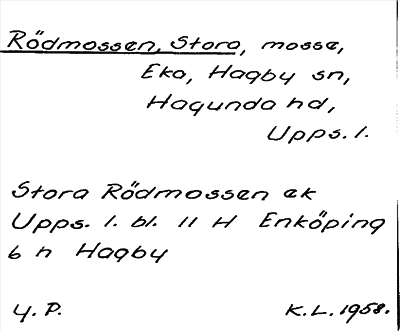 Rödmossen, Stora, mosse,
Eka, Hagby sn,
Hagunda hd,
Upps. l.
Stora Rödmossen ek
Upps. l. bl. 11 H Enköping
6 n Hagby
Y. P. K.L. 1958.